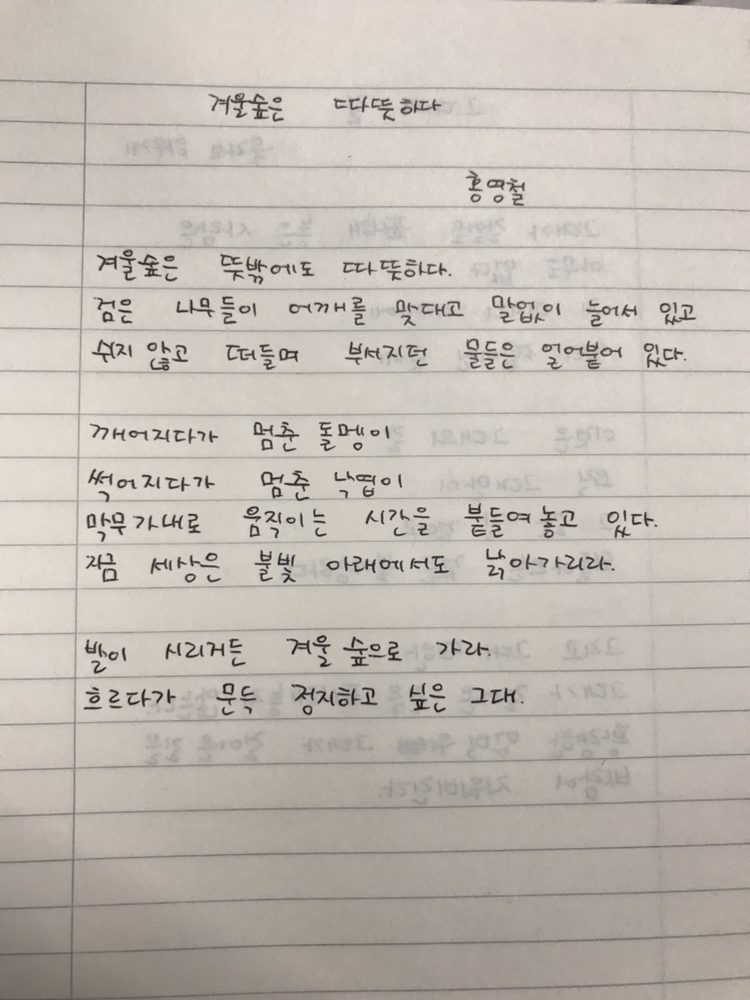 겨울숲은 따뜻하다
홍영철
겨울숲은 뜻밖에도 따뜻하다.
검은 나무들이 어깨를 맞대고 말없이 늘어서 있고
쉬지 않고 떠들며 부서지던 물들은 얼어붙어 있다.
깨어지다가 멈춘 돌멩이
썩어지다가 멈춘 낙엽이
막무가내로 움직이는 시간을 붙들여놓고 있다.
지금 세상은 불빛 아래에서도 낡아가리라.
발이 시리거든 겨울 숲으로 가라.
흐르다가 문득 정지하고 싶은 그대.